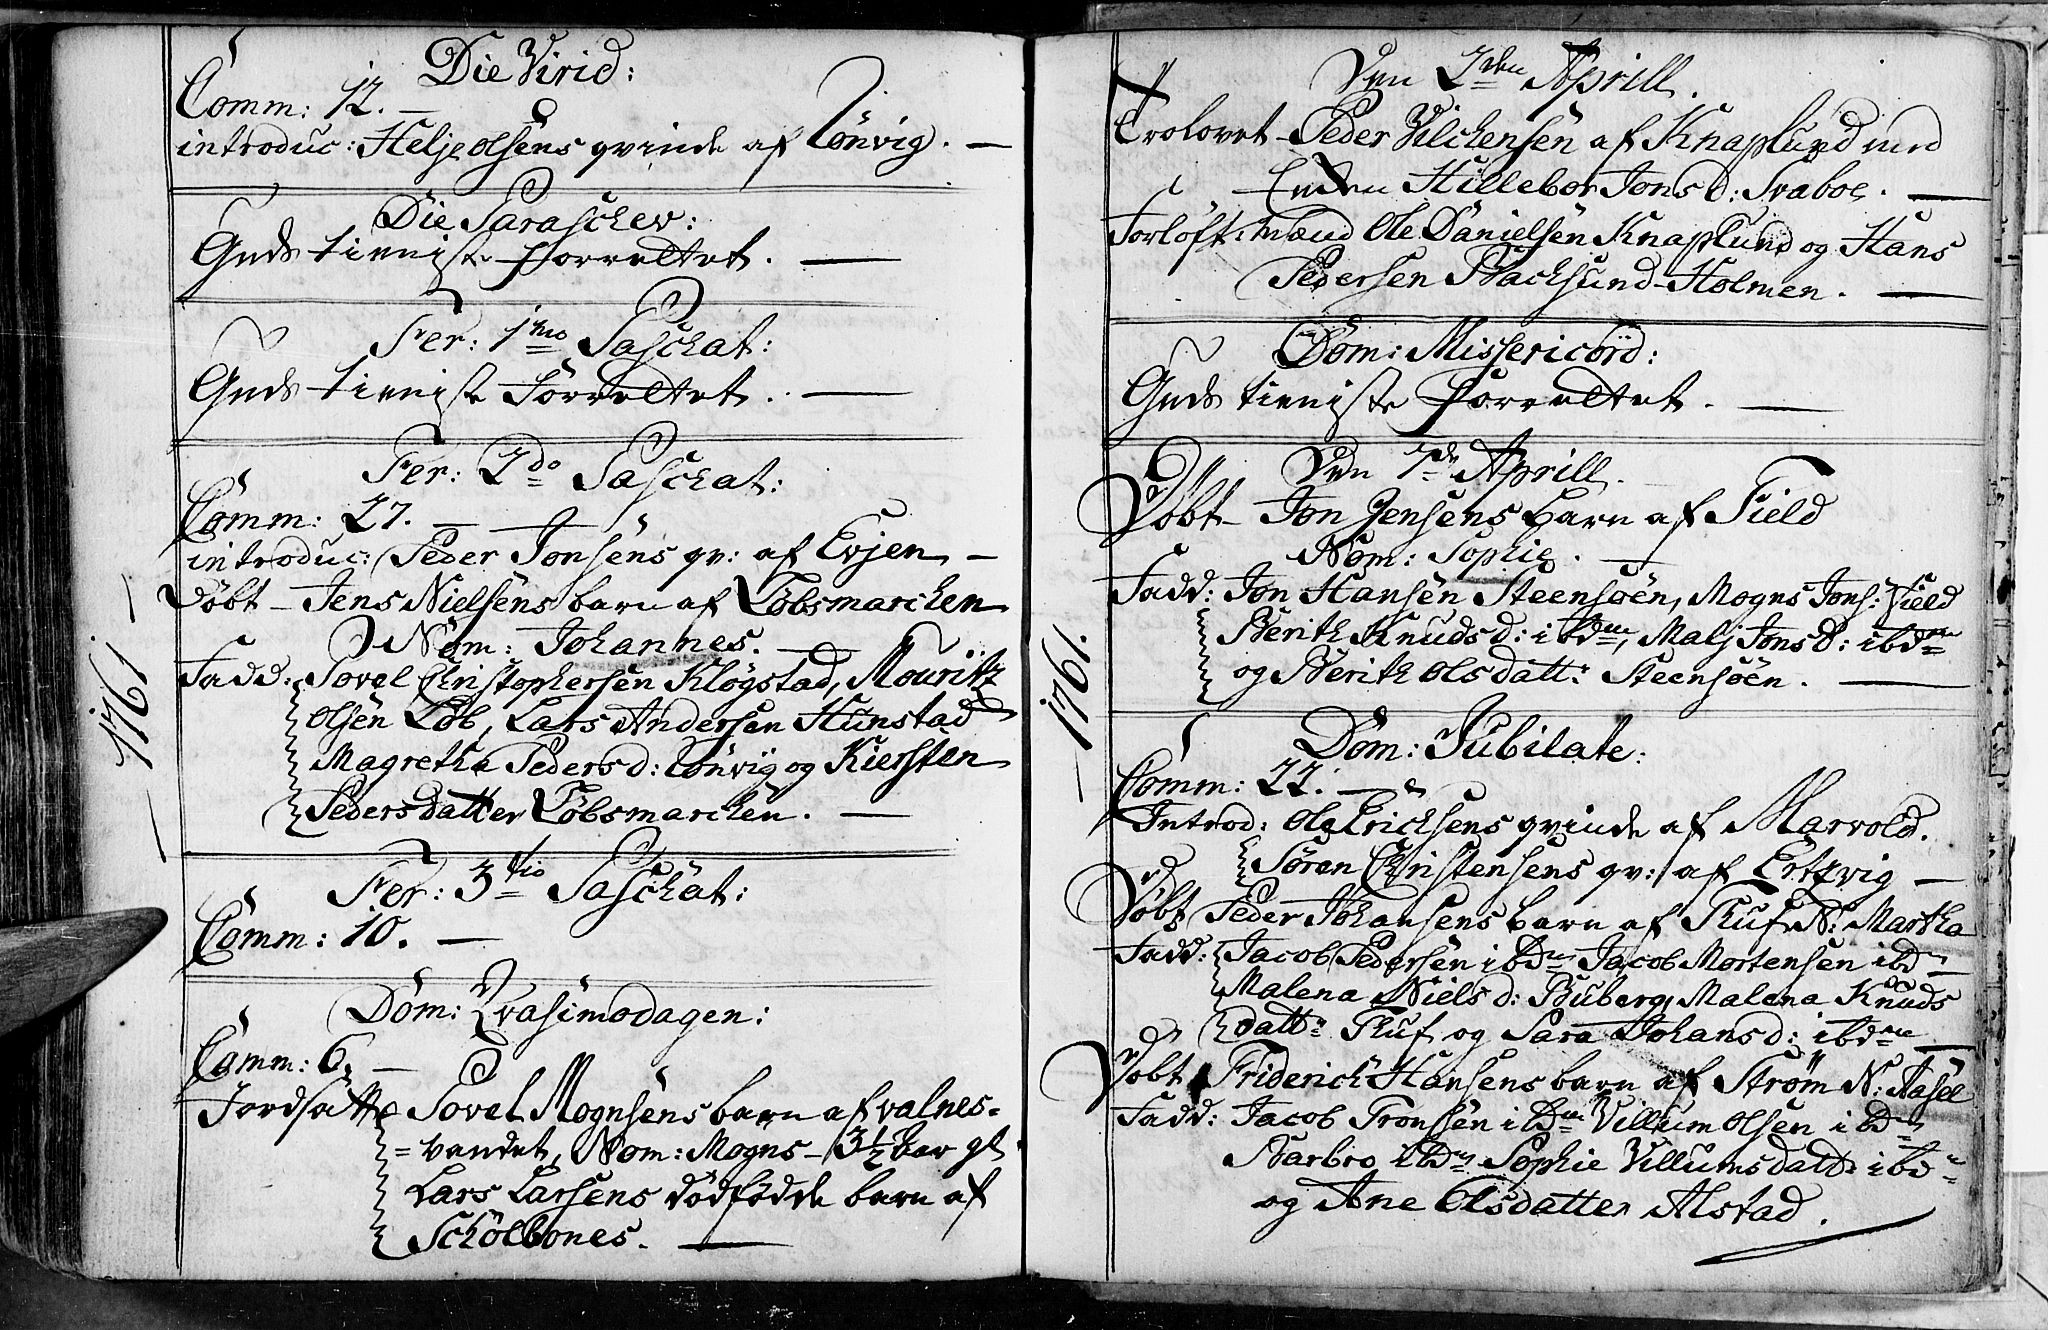 Die Virid:
Comm: 12. —
introduc: Helje olsens qvinde af Lönvig. —
Die Paraschev:
Guds tieniste forrettet. —
Fer: 1mo Paschat:
Guds tieniste Forrettet. —
Fer: 2do Paschat:
Comm: 27. —
introduc: Peder Jonsens qv: af Evjen —
Döbt — Jens Nielsens barn af Löbsmarchen
Nom: Johannes. —
Fadd: Povel Christophersen Klögstad, Mouritz
Olsen Löb, Lars Andersen Hunstad
Magretha Pedersd: Lönvig og Kiersten
Pedersdatter Löbsmarchen. —
— 1761 —
Fer: 3tio Paschat:
Comm: 10. —
Dom: Qvasimodagen:
Comm: 6. —
Jordsatte Povel Mognsens barn af valnes-
=vandet, Nom: Mogns — 3½ aar gl
Lars Larsens dödfödde barn af
Schölbones. —
Den 2den Aprill.
Trolovet — Peder Vilchensen af Knaplund med
Enken Hillebor Jonsd: Svaboe. —
Forlöft. Mænd Ole Danielsen Knaplund og Hans
Pedersen Backsund-Holmen. —
Dom: Missericord:
Guds tieniste forrettet. —
Den 7de Aprill.
Döbt — Jon Jensens barn af Field
Nom: Sophie. —
Fadd: Jon Hansen Steensöen, Mogns Jons: Field
Berith Knudsd: ibdm, Malj Jonsd: ibdm
og Berith Olsdattr Steensöen. —
— 1761. —
Dom: Jubilate:
Comm: 22. —
Introd: Ole Erichsens qvinde af Marvold.
Sören Christensens qv: af Ertzvig —
Döbt Peder Johansens barn af Tuf N: Martha
Fadd: Jacob Pedersen ibdm Jacob Mortensen ibdm
Malena Nielsd: Buberg, Malena Knuds
dattr Tuf og Sara Johansd: ibdm —
Döbt Friderich Hansens barn af Ström N: Aasel
Fadd: Jacob Tronsen ibdm Villum Olsen ibdm
Barbro ibdm Sophie Villumsdatt: ibdm
og Ane Olsdatter Alstad.